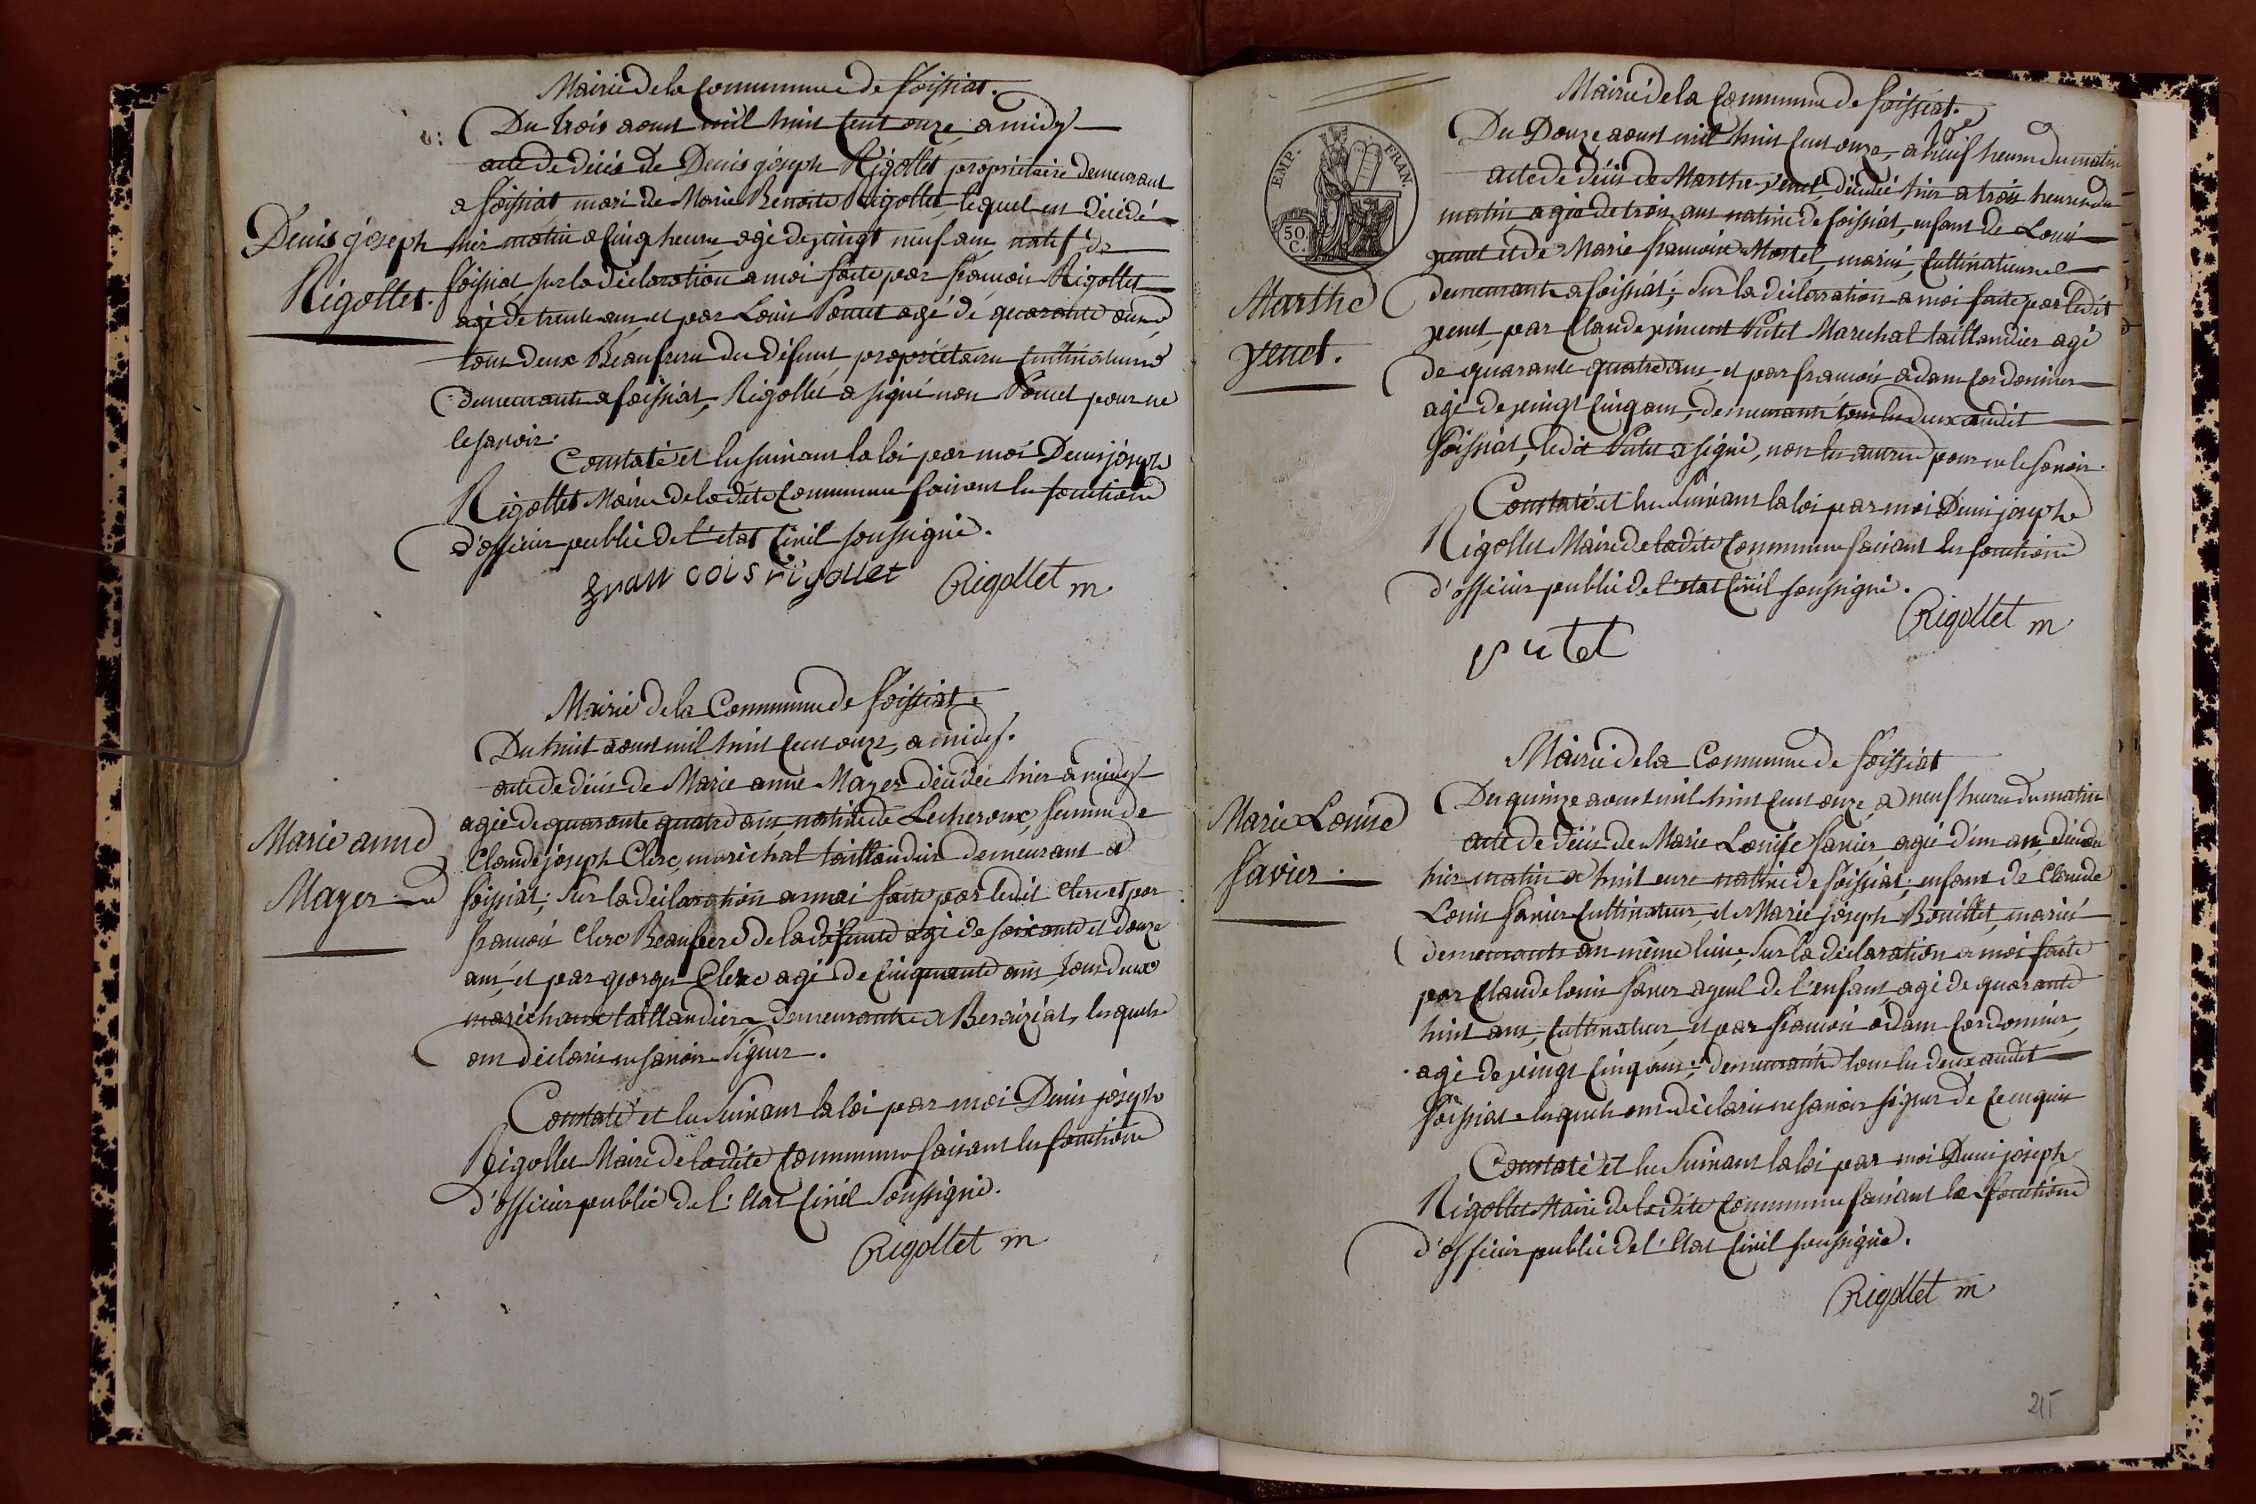 Mairie de la Commune de foissiat.
Du trois aoust mil huit cent onze a midy
acte de décès de Denis joseph Rigollet propriétaire demeurant
a foissiat mari de Marie Benoite Rigollet lequel est décédé
Denis joseph
Rigollet.
hier matin a cinq heure agé de vingt neuf ans natif de
foissiat sur la déclaration a moi faite par francois Rigollet
agé de trente ans et par Louis Poncet agé de quarante
tous deux Beaufrere du défunt propriétaire Cultivateurs
demeurants a foissiat, Rigollet a signé non Poncet pour ne
le savoir.
Constaté et lu suivant la loi par moi Denis joseph
Rigollet Maire de la dite Commune faisant les fonctions
d'officier public de l'etat Civil soussigné.
francois rigollet Rigollet m
Mairie de la Commune de foissiat
Du huit aoust mil huit cent onze, a midy.
acte de décès de Marie anne Mayer décédée hier a midy
Marie anne
Mayer
agée de quarante quatre ans, native de Lecheroux, femme de
Claude joseph Clerc, maréchal taillandier demeurant a
foissiat; sur la déclaration a moi faite par ledit Clerc et par
francois Clerc Beaufrere de la défunte agé de soixante et douze
ans, et par george Clerc agé de Cinquante ans, tous deux
maréchaux taillandiers demeurants a Beraiziat, lesquels
ont déclaré ne savoir signer.
Constaté et lu suivant la loi par moi Denis joseph
Rigollet Maire de la dite Commune faisant les fonctions
d'officier public de l'etat Civil soussigné.
Rigollet m
Mairie de la Commune de foissiat.
Du Douze aoust mil huit cent onze, a neuf heure du matin
EMP. FRAN.
50
C.
acte de décès de Marthe yenet, décédée hier a trois heure du
matin agée de trois ans native de foissiat, enfant de Louis
yenet et de Marie francoise Mortel, mariés, Cultivateurs
Marthe
yenet.
demeurants a foissiat; sur la déclaration a moi faite par ledit
yenet, par Claude vincent Putet Marechal taillandier agé
de quarante quatre ans et par francois adam Cordonnier
agé de vingt cinq ans, demeurants tous les deux audit
foissiat, ledit Putet a signé, non les autres pour ne le savoir.
Constaté et lu suivant la loi par moi Denis joseph
Rigollet Maire de la dite Commune faisant les fonctions
d'officier public de l'etat Civil soussigné.
putet Rigollet m
Mairie de la Commune de foissiat
Du quinze aoust mil huit cent onze, a neuf heure du matin
Marie Louise
favier.
acte de décès de Marie Louise favier, agée d'un an, décédée
hier matin a huit eure native de foissiat, enfant de Claude
Louis favier Cultivateur, et Marie joseph Bouillet, mariés
demeurants au même lieu, sur la déclaration a moi faite
par Claude louis favier ayeul de l'enfant, agé de quarante
huit ans, Cultivateur, et par francois adam Cordonnier,
agé de vingt Cinq ans, demeurants tous les deux audit
foissiat lesquels ont déclaré ne savoir signer de ce enquis
Constaté et lu suivant la loi par moi Denis joseph
Rigollet Maire de la dite Commune faisant les fonctions
d'officier public de l'etat Civil soussigné.
Rigollet m
215